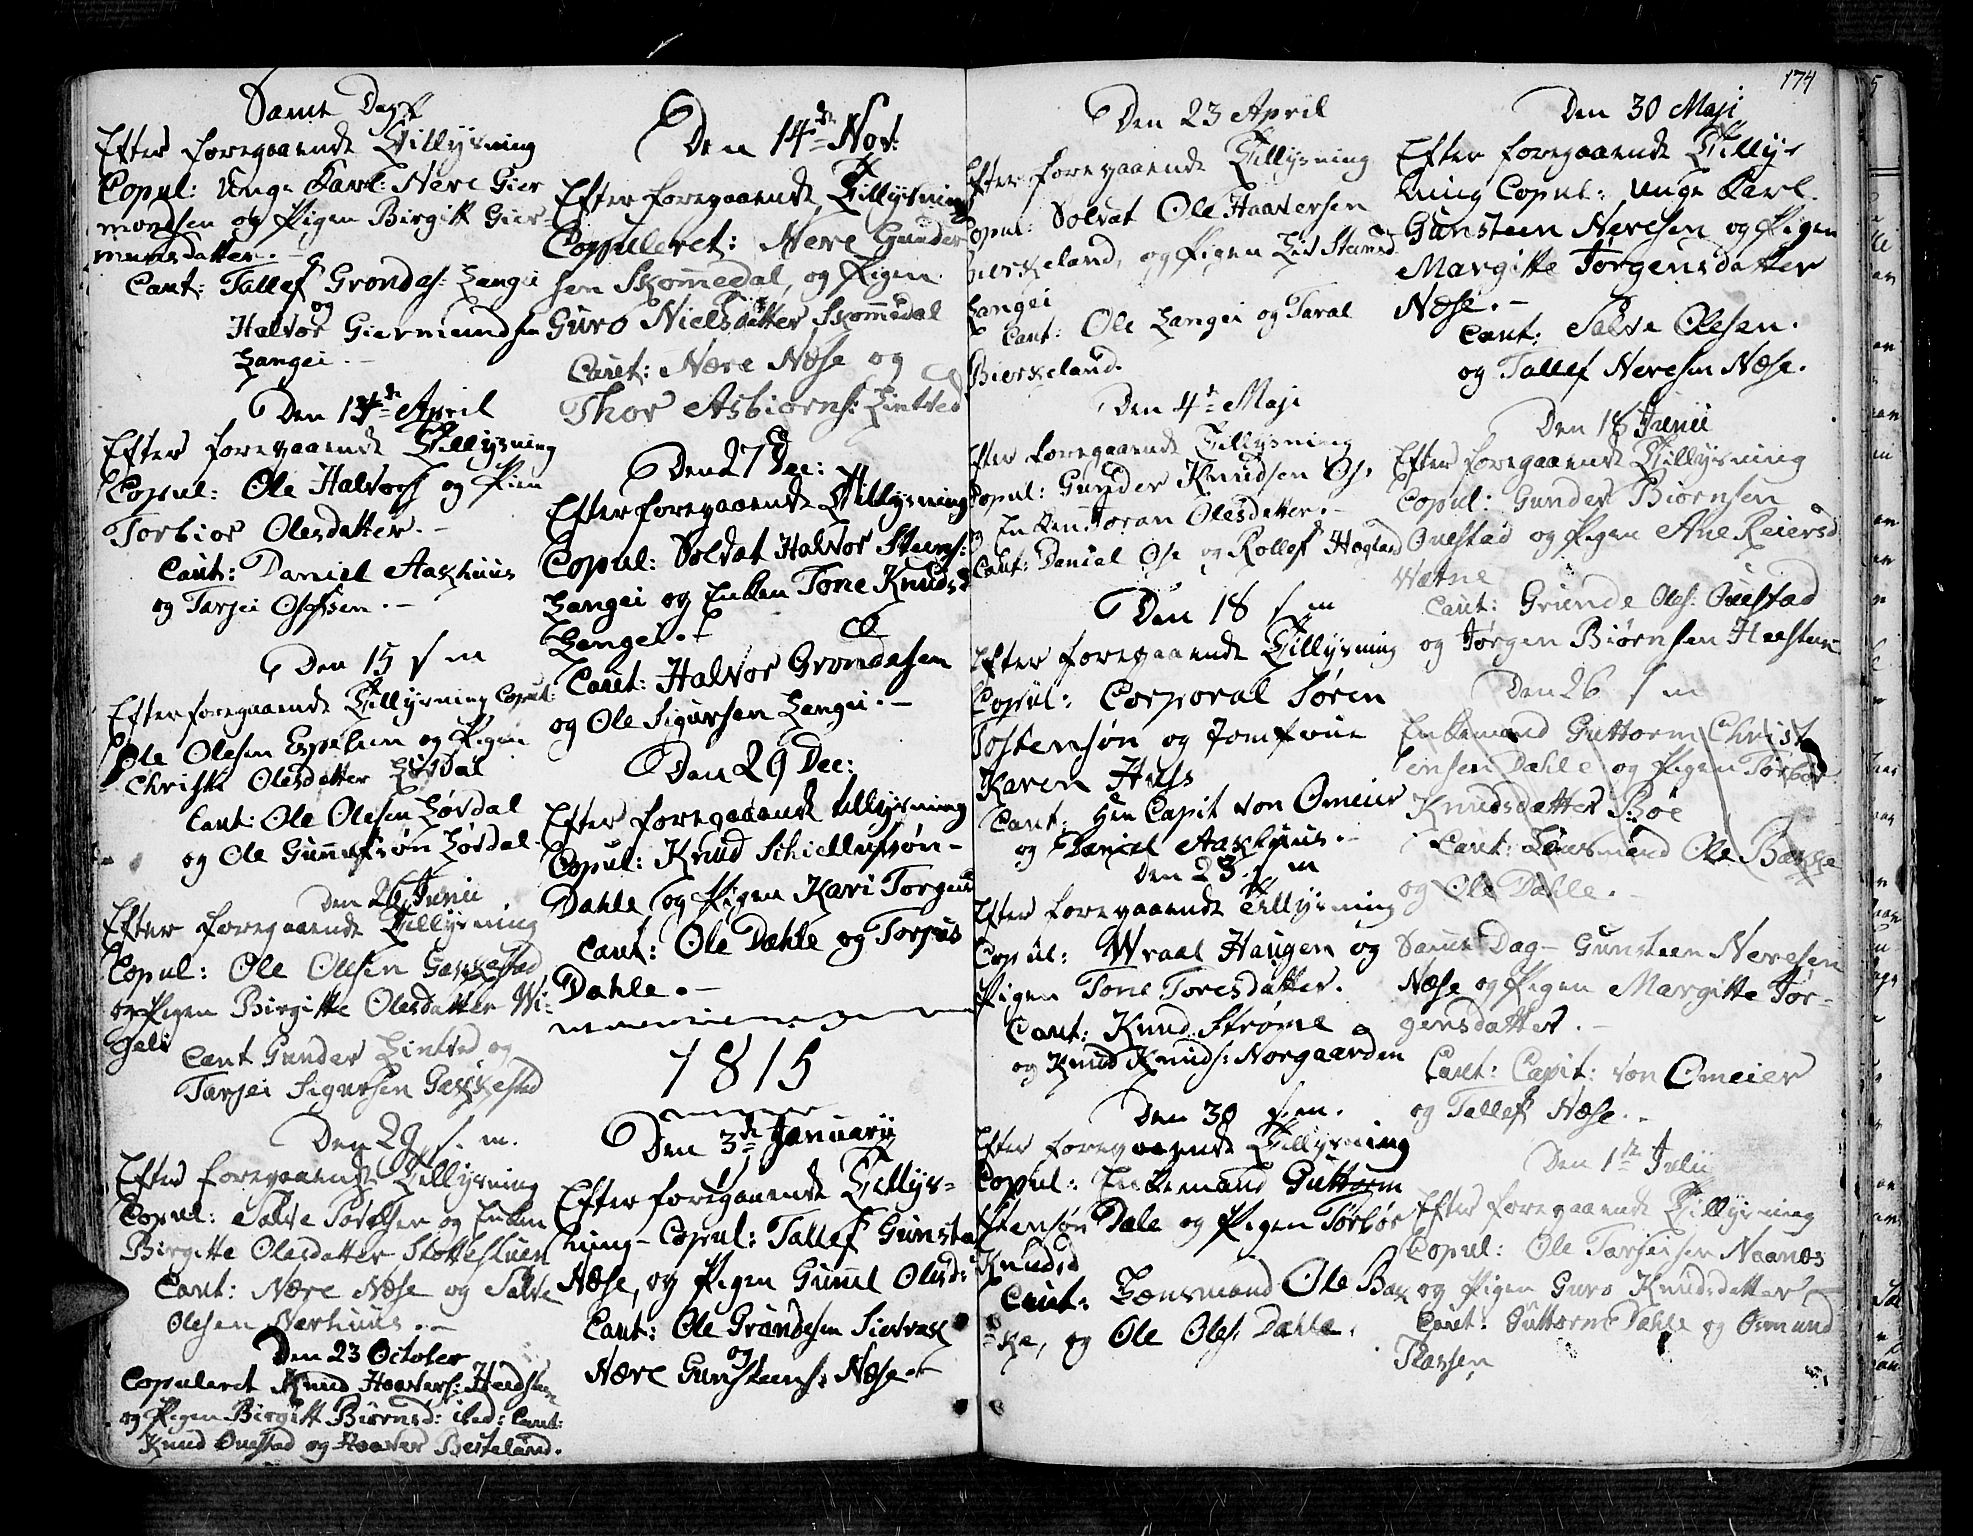 Samt Dag
Efter foregaaende Tillysning
Copul: Unge Karl: Nere Gier
mondsen og Pigen Birgitt Gier
mundsdatter. -
Caut: Tallef Grondas: Langei
og
Halvor Giermundsen
Langei. -
Den 13de April
Efter foregaaende Tillysning
Copul: Ole Halvors og Pien
Torbior Olesdatter. -
Caut: Daniel Aakhuus
og Tarjei Osufsen. -
Den 15 s m
Efter foregaaende Tillysning Copul:
Ole Olesen Espelien og Pigen
Christi Olesdatter Løvdal
Caut: Ole Olesen Løvdal
og Ole Gunnufsøn Løvdal
Den 26 Junii
Efter foregaaende Tillysning
Copul: Ole Olesen Gakkestad
og Pigen Birgitte Olesdatter Wi-
geli
Caut Gunder Lintved og
Tarjei Sigursen Gakkestad
Den 29 s. m.
Efter foregaaende Tillysning
Copul: Salve Torelfsen og Enken
Birgitte Olesdatter Stottestuen
Caut: Nære Næse og Salve
Olesen Nærhuus. -
Den 23 October
Copuleret Knud Haavers: Heidsteen
og Pigen Birgitt Biørnsd: ibid: Caut:
Knud Ouestad og Haaver Berteland.
Den 14de Nov:
Efter foregaaende Tillysning
Copuleret: Nere Gunder
sen Skomedal, og Pigen
Guro Nielsdatter Skomedal
Caut: Nære Næse og
Thor Asbiorns: Lintved
Den 27 Dec:
Efter foregaaende Tillysning
Copul: Soldat Halvor Steens:
Langei og Enken Tone Knudsd
Langei. -
Caut: Halvor Grondesen
og Ole Sigursen Langei. -
Den 29 Dec:
Efter foregaaende tillysning
Copul: Knud Schiellufsøn -
Dahle og Pigen Kari Torgeus
Caut: Ole Dahle og Torjus
Dahle. -
1815
Den 3de Januarii
Efter foregaaende Tillys-
ning - Copul: Tallef Gunsta
Næse, og Pigen Gunnel Olesd:
Caut: Ole Grundesen Sietvak
og
Nære Gunsteens: Næse. -
Den 23 April
Efter foregaaende Tillysning
Copul: Soldat Ole Haaversen
Bierkeland, og Pigen Liv Steensd
Langei
Caut: Ole Langei og Taral
Bierkeland.
Den 4de Maji
Efter foregaaende Tillysning
Copul: Gunder Knudsen Ose
og Enken Joran Olesdatter. -
Caut: Daniel Ose og Rollef Hogland
Den 18 s m
Efter foregaaende Tillysning
Copul: Corporal Søren
Tostensøn og Jomfrue
Karen Huss
Caut: Hr Capit von Omeier
og Daniel Aakhuus. -
Den 23 s m
Efter foregaaende Tillysning
Copul: Wraal Haugen og
Pigen Tone Toresdatter.
Caut: Knud Strøme
og Knud Knuds: Norgaarden
Den 30 s m.
Efter foregaaende Tillysning
Copul: Enkemand Guttorm
Østensøn Dale og Pigen Torbor
Knudsd
Caut: Lensmand Ole Bak
ke, og Ole Oles: Dahle.
174
Den 30 Maji
Efter foregaaende Tillys
ning Copul: Unge Karl
Gunsteen Neresen og Pigen
Margitte Jørgensdatter
Næse. -
Caut: Salve Olesen.
og Tallef Neresen Næse.
Den 18 Junii
Efter foregaaende Tillysning
Copul: Gunder Biørnsen
Ouestad og Pigen Ane Reiersd
Watne
Caut: Grunde Oles: Ouestad
og Jørgen Biørnsen Heesteen
Den 26 s m
Enkemand Guttorm Christ
ensen Dahle og Pigen Torbor
Knudsdatter Bøe
Caut: Lensmand Ole Bakke
og Ole Dahle. -
Samme Dag - Gunsteen Neresen
Næse og Pigen Margitte Jør-
gensdatter. -
Caut: Capit: von Omeier
og Tallef Næse. -
Den 1ste Julii
Efter foregaaende Tillysning
Copul: Ole Tarjeisen Naanes
og Pigen Guro Knudsdatter
Caut: Guttorm Dahle og Osmund